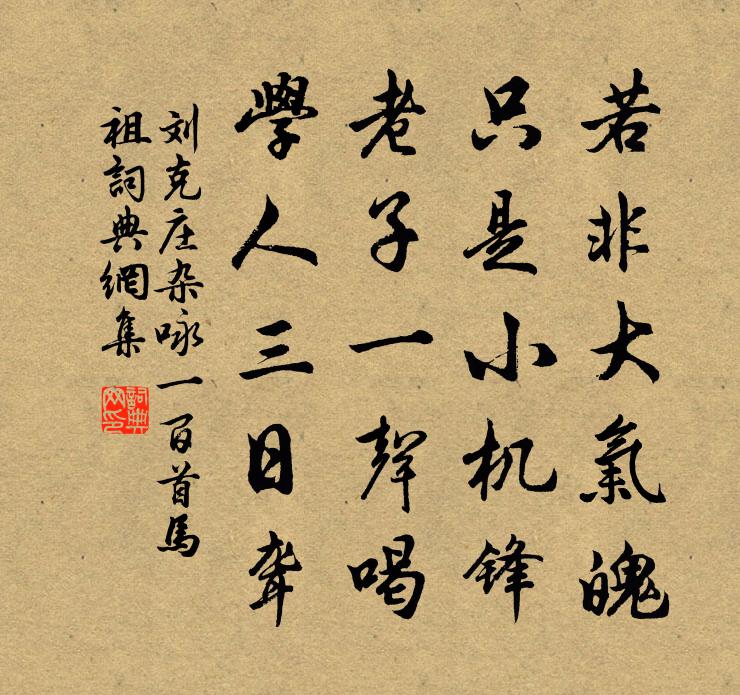 若非大氣魄
只是小机鋒
老子一聲喝
學人三日聾
刘克庄杂咏一百首馬
祖詞典網集
詞典網印